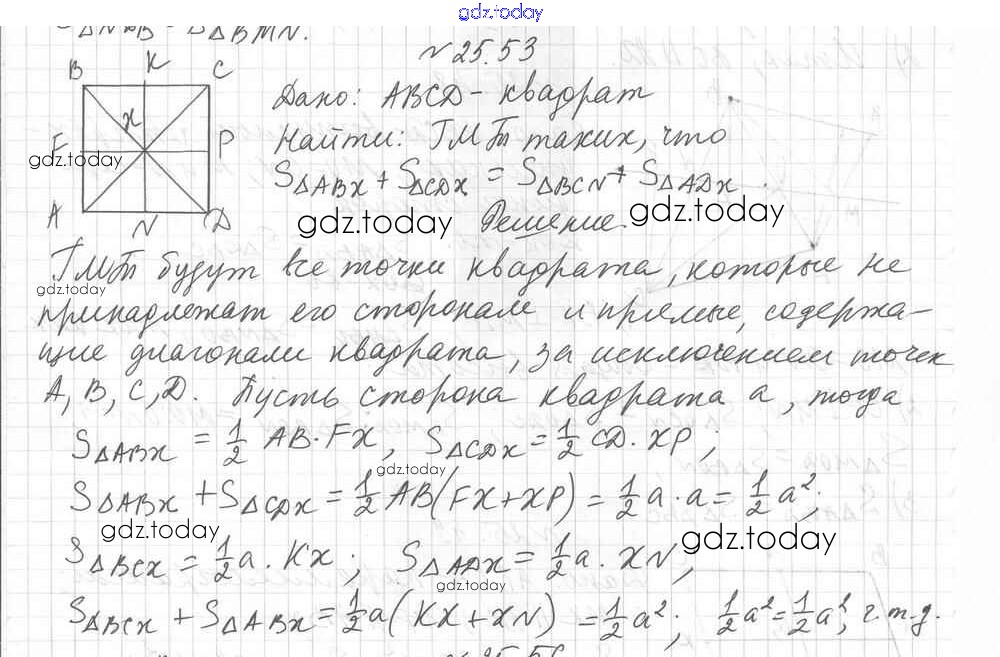 gdz.today
S△NKB = S△BMN.
№25.53
B K C
Дано: ABCD - квадрат
x
Найти: ГМТ таких, что
F P
gdz.today
S△ABX + S△CDX = S△BCN + S△ADX.
A N D
gdz.today Решение. gdz.today
ГМТ будут все точки квадрата, которые не
gdz.today
принадлежат его сторонам и прямые, содержа-
щие диагонали квадрата, за исключением точек
A, B, C, D. Пусть сторона квадрата a, тогда
S△ABX = 1/2 AB·FX, S△CDX = 1/2 CD·XP;
gdz.today
S△ABX + S△CDX = 1/2 AB(FX+XP) = 1/2 a·a = 1/2 a²;
gdz.today gdz.today
S△BCX = 1/2 a·KX; S△ADX = 1/2 a·XN;
gdz.today
S△BCX + S△ABX = 1/2 a(KX+XN) = 1/2 a²; 1/2 a² = 1/2 a², ч.т.д.